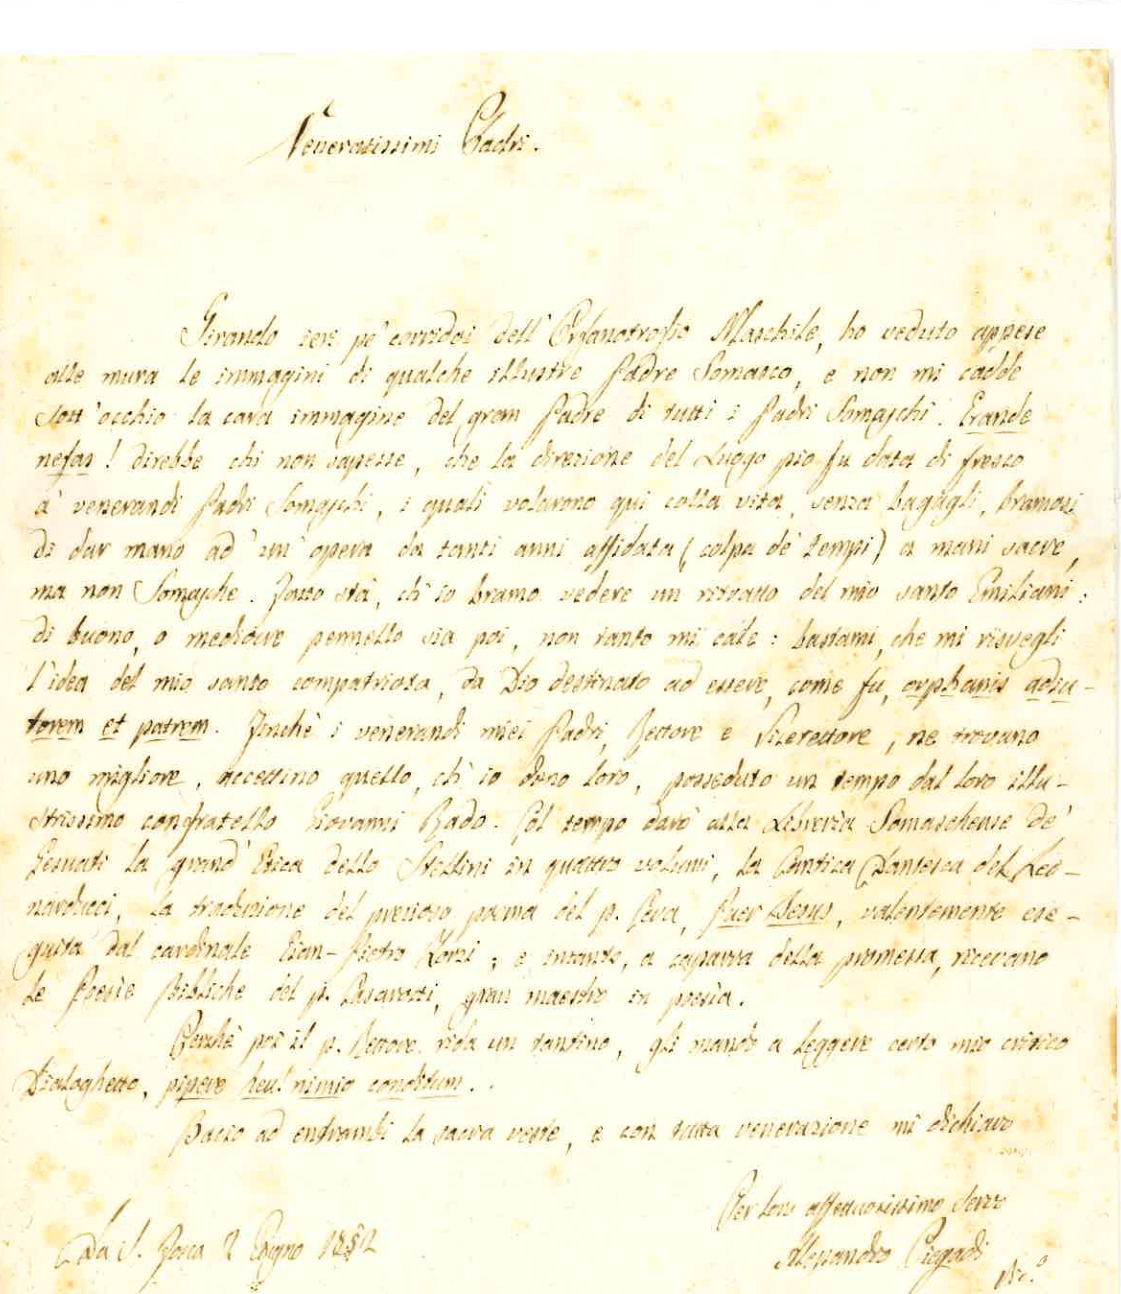 Veneratissimi Padri.
Girando ieri pe' corridoi dell'Orfanotrofio Maschile, ho veduto appese
alle mura le immagini di qualche illustre Padre Somasco, e non mi cadde
sott'occhio la cara immagine del gran Padre di tutti i Padri Somaschi. Grande
nefas! direbbe chi non sapesse, che la direzione del Luogo pio fu data di fresco
a' venerandi Padri Somaschi, i quali volarono qui colla vita, senza bagagli, bramosi
di dar mano ad un'opera da tanti anni affidata (colpa de' tempi) a mani sacre,
ma non Somasche. Fatto stà, ch'io bramo vedere un ritratto del mio santo Emiliani:
di buono, o mediocre pennello sia poi, non tanto mi cale: bastami, che mi risvegli
l'idea del mio santo compatriota, da Dio destinato ad essere, come fu, orphanis adiu-
torem et patrem. Finchè i venerandi miei Padri, Rettore e Vicerettore, ne trovano
uno migliore, accettino quello, ch'io dono loro, posseduto un tempo dal loro illu-
strissimo confratello Giovanni Rado. Col tempo darò alla Libreria Somaschense de'
Gesuati la grand'Etica dello Stellini in quattro volumi, la Cantica Dantesca del Leo-
narducci, la traduzione del prezioso poema del p. Ceva, Puer Jesus, valentemente ese-
guita dal cardinale Gian-Pietro Zorzi; e intanto, a caparra della promessa, ricevano
le Poesie Bibliche del p. Casarotti, gran maestro in poesia.
Perchè poi il p. Rettore rida un tantino, gli mando a leggere certo mio critico
Dialoghetto, pipere heu! nimio conditum..
Bacio ad entrambi la sacra veste, e con tutta venerazione mi dichiaro
Da S. Fosca 2 Giugno 1852
Per loro affettuosissimo Servo
Alessandro Piegadi